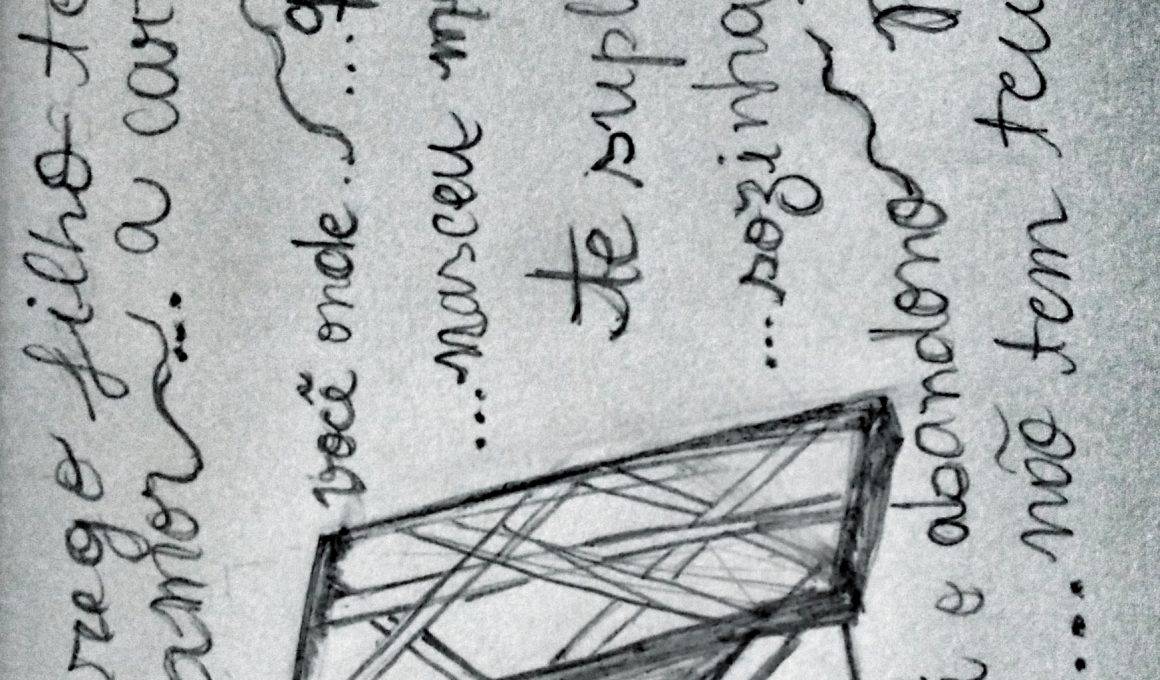 rego o filho te
amor ... a car
você onde..
...nasceu
te supl
...sozinha
o abandono
... não tem teu